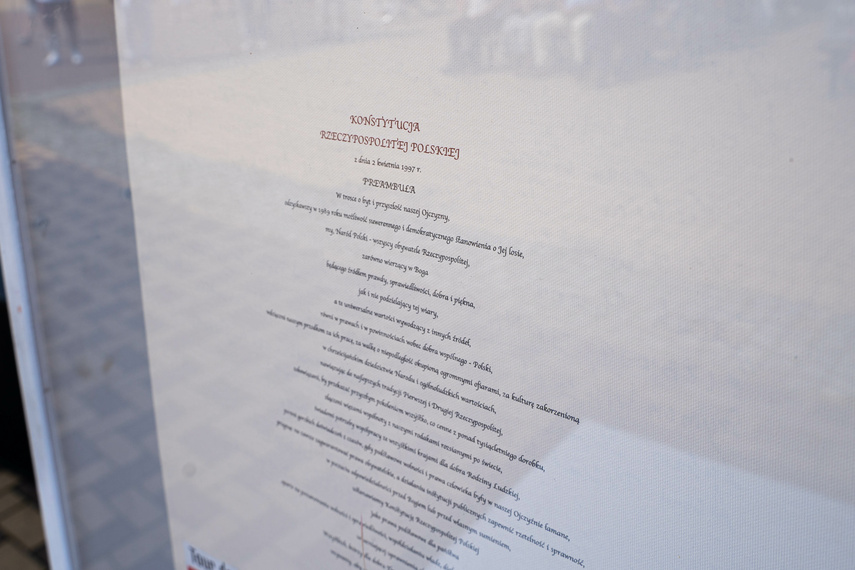 KONSTYTUCJA
RZECZYPOSPOLITEJ POLSKIEJ
z dnia 2 kwietnia 1997 r.
PREAMBUŁA
W trosce o byt i przyszłość naszej Ojczyzny,
odzyskawszy w 1989 roku możliwość suwerennego i demokratycznego stanowienia o Jej losie,
my, Naród Polski - wszyscy obywatele Rzeczypospolitej,
zarówno wierzący w Boga
będącego źródłem prawdy, sprawiedliwości, dobra i piękna,
jak i nie podzielający tej wiary,
a te uniwersalne wartości wywodzący z innych źródeł,
równi w prawach i w powinnościach wobec dobra wspólnego - Polski,
wdzięczni naszym przodkom za ich pracę, za walkę o niepodległość okupioną ogromnymi ofiarami, za kulturę zakorzenioną
w chrześcijańskim dziedzictwie Narodu i ogólnoludzkich wartościach,
nawiązując do najlepszych tradycji Pierwszej i Drugiej Rzeczypospolitej,
zobowiązani, by przekazać przyszłym pokoleniom wszystko, co cenne z ponad tysiącletniego dorobku,
złączeni więzami wspólnoty z naszymi rodakami rozsianymi po świecie,
świadomi potrzeby współpracy ze wszystkimi krajami dla dobra Rodziny Ludzkiej,
pomni gorzkich doświadczeń z czasów, gdy podstawowe wolności i prawa człowieka były w naszej Ojczyźnie łamane,
pragnąc na zawsze zagwarantować prawa obywatelskie, a działaniu instytucji publicznych zapewnić rzetelność i sprawność,
w poczuciu odpowiedzialności przed Bogiem lub przed własnym sumieniem,
ustanawiamy Konstytucję Rzeczypospolitej Polskiej
jako prawa podstawowe dla państwa
Tour